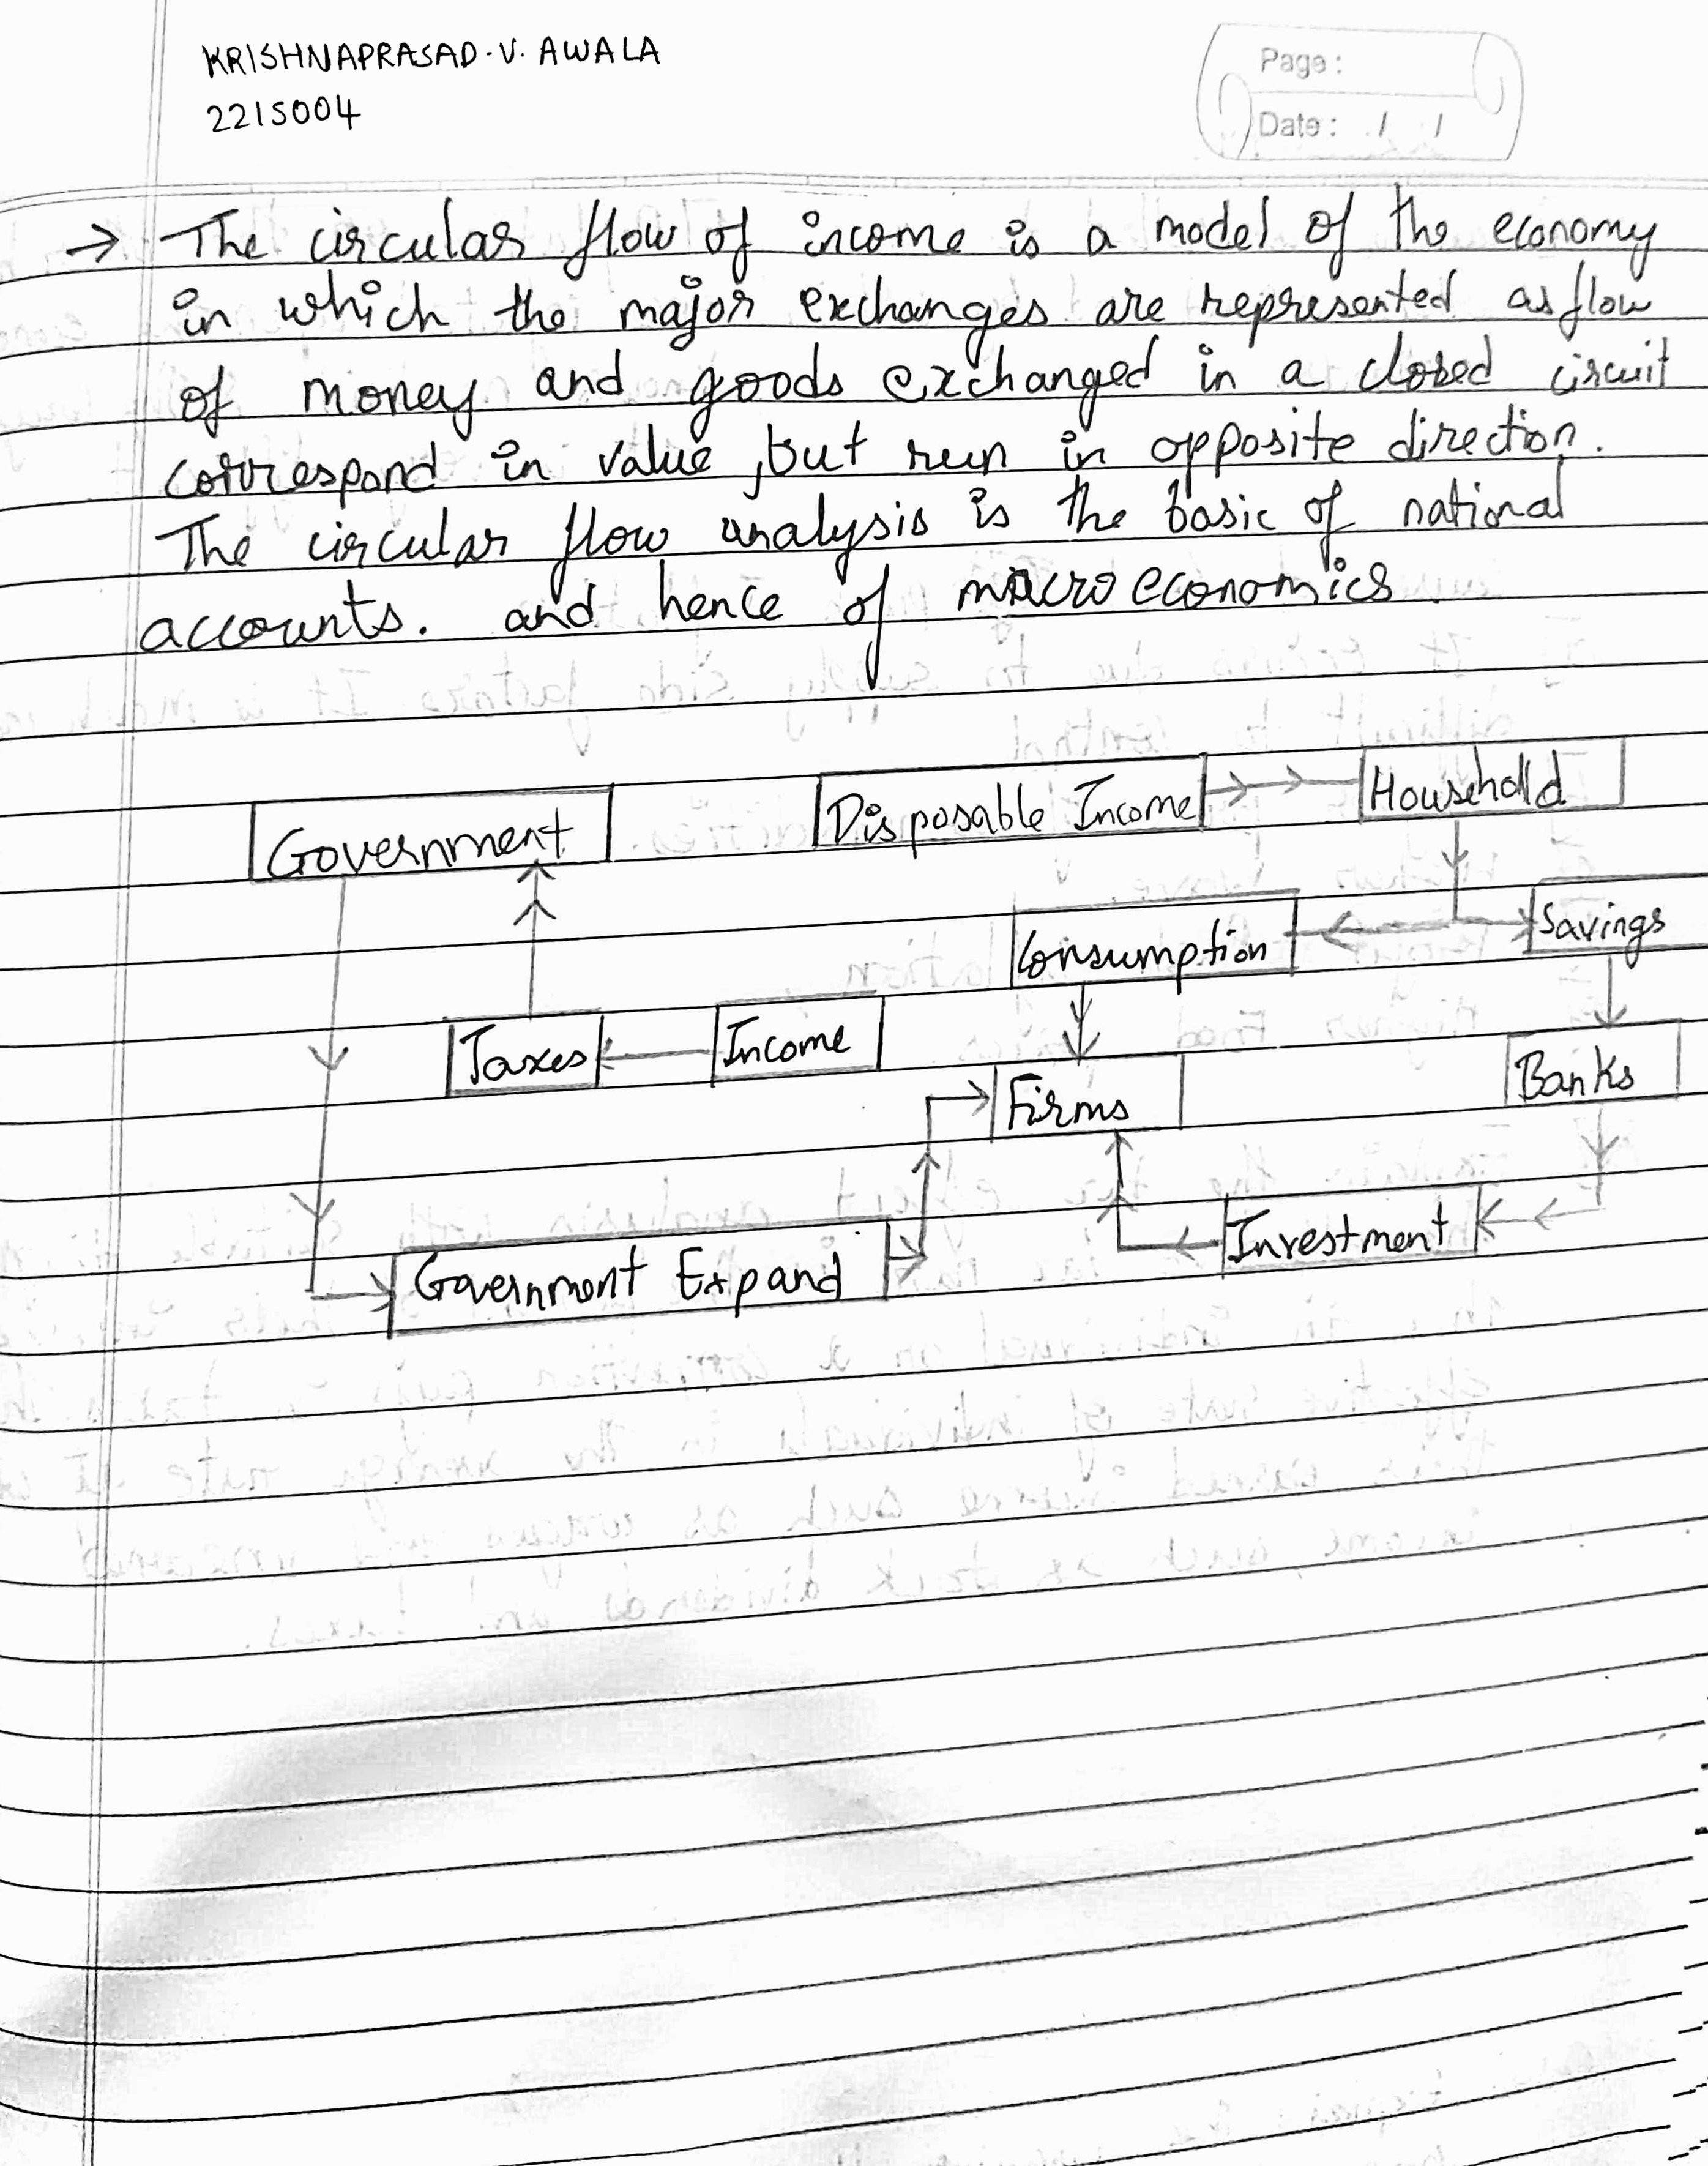 KRISHNAPRASAD.V. AWALA
2215004
Page :
Date : / /
→ The circular flow of income is a model of the economy
in which the major exchanges are represented as flow
of money and goods exchanged in a closed circuit
correspond in value, but run in opposite direction.
The circular flow analysis is the basic of national
accounts. and hence of macroeconomics.
Government
Disposable Income
Household
Consumption
Savings
Taxes
Income
Firms
Banks
Government Expand
Investment